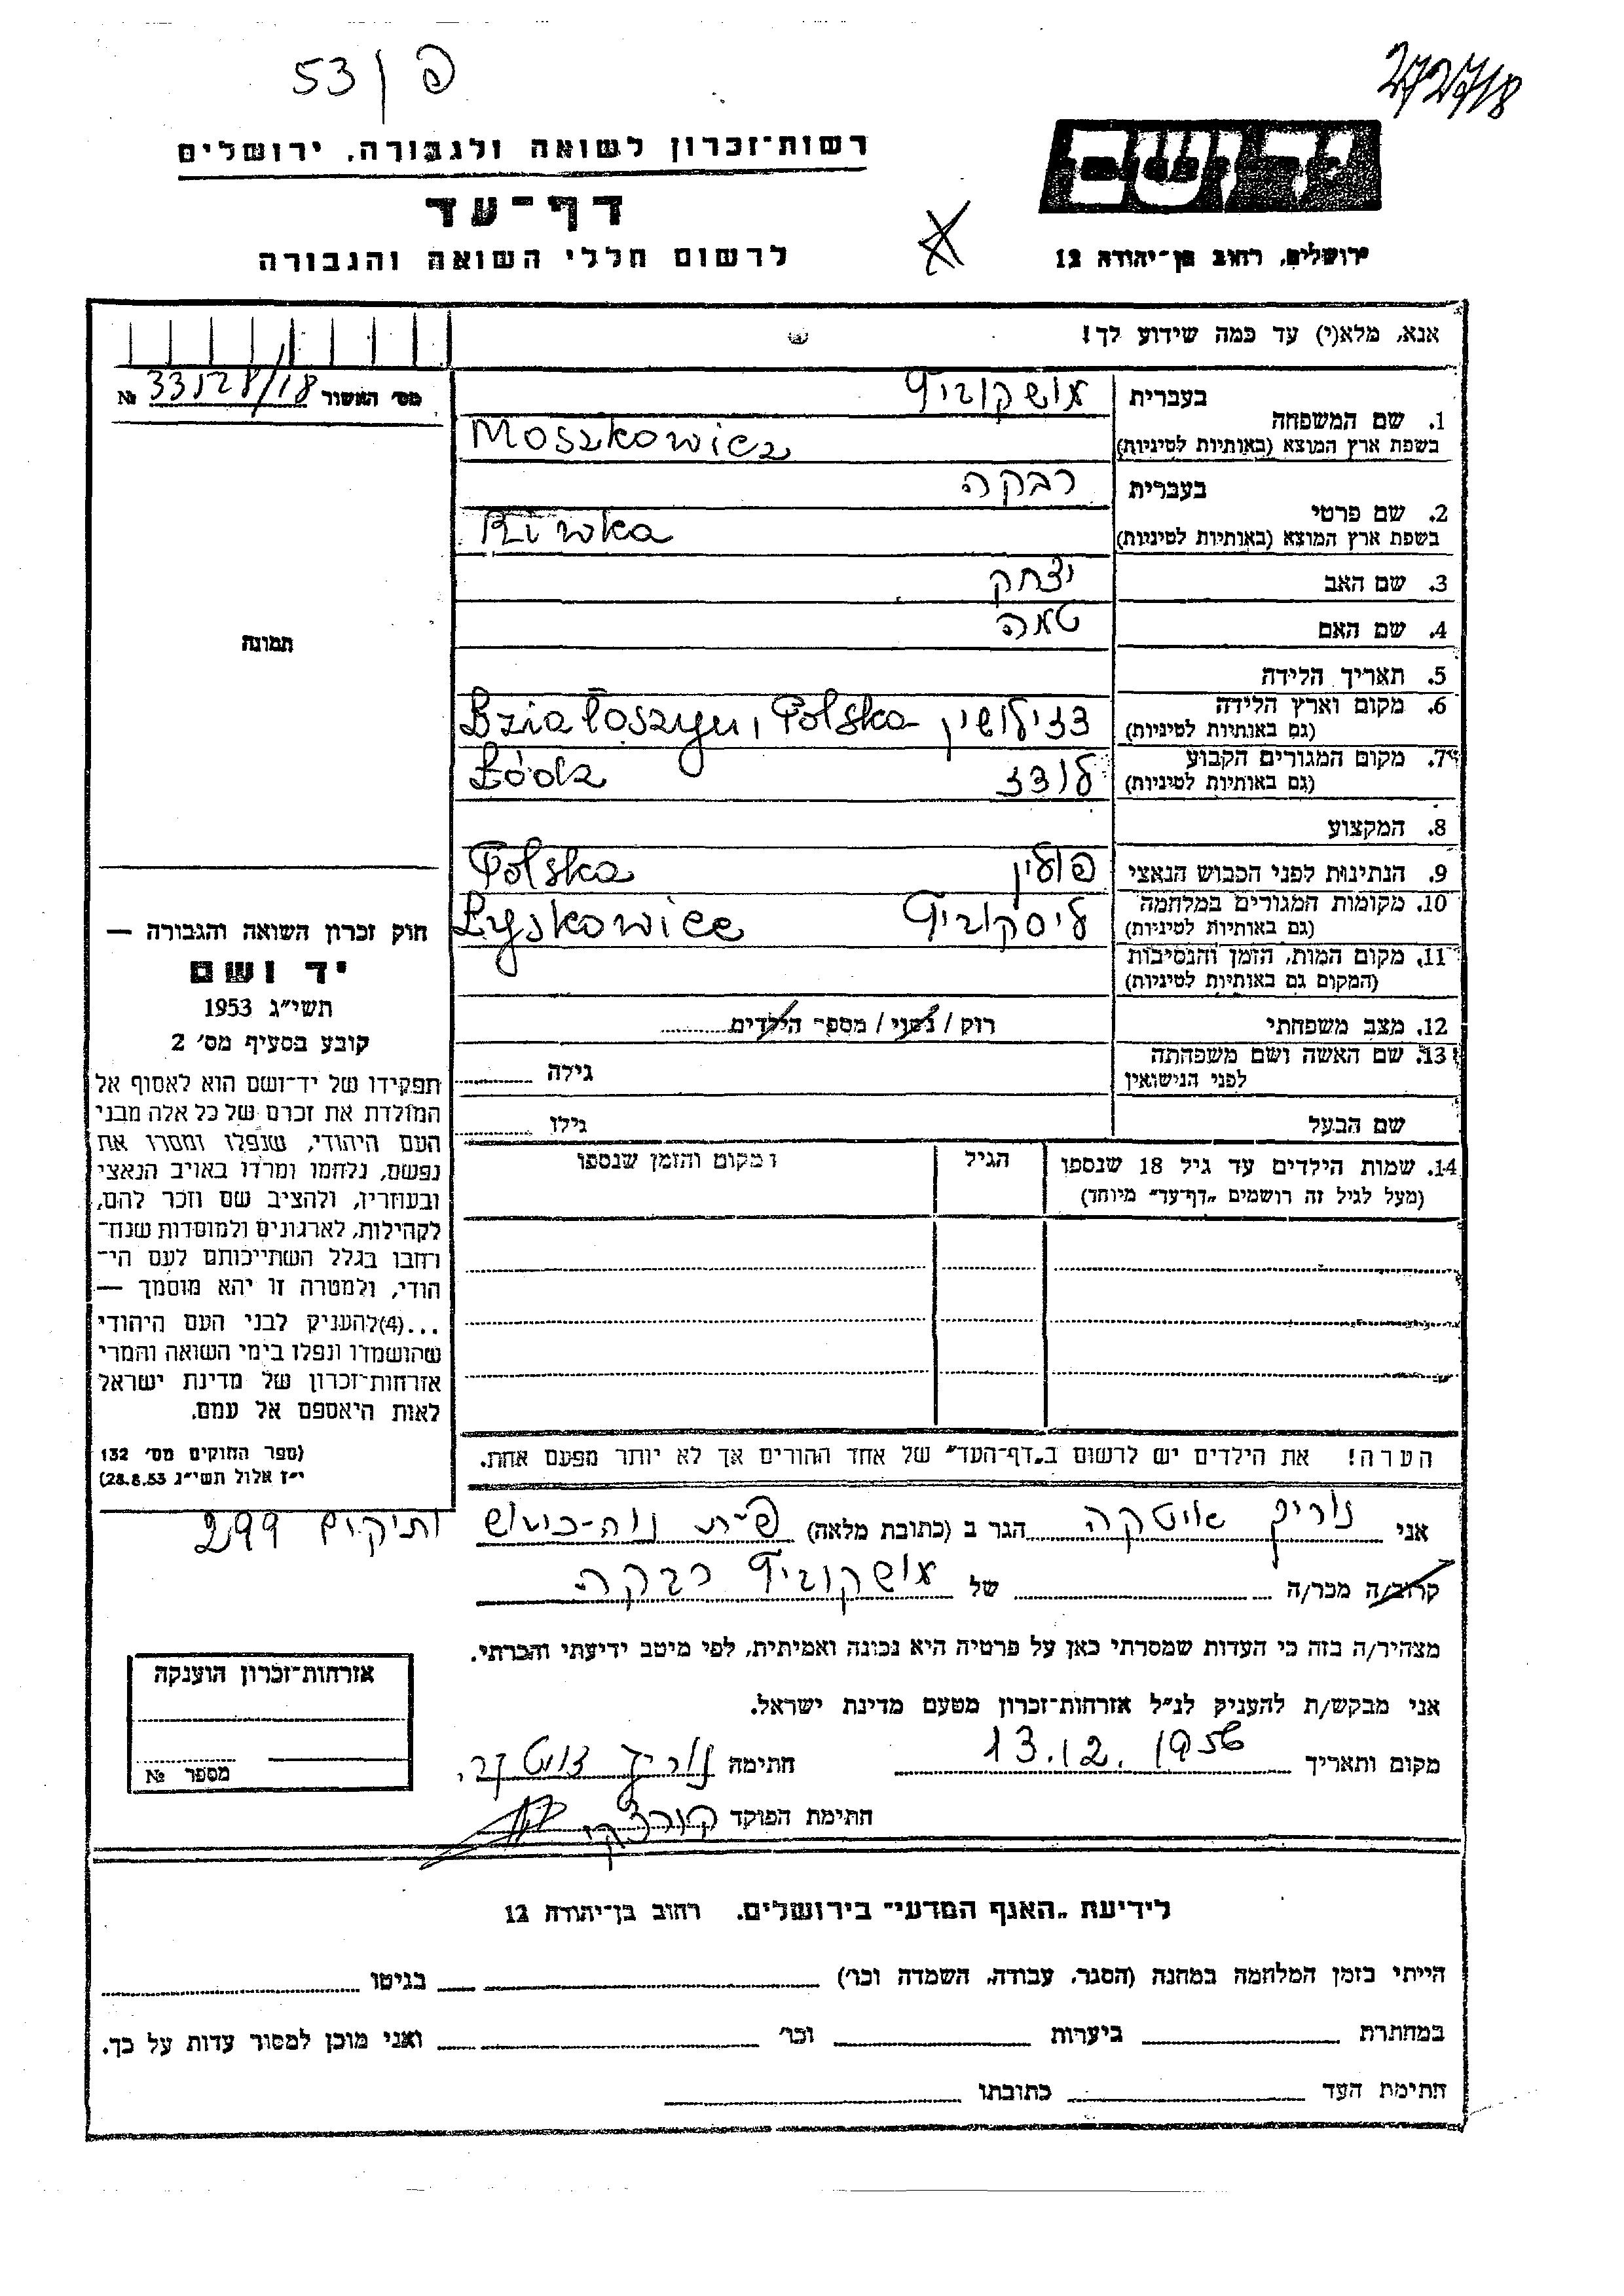 53 / פ
272718
רשות־זכרון לשואה ולגבורה, ירושלים
דף־עד
לרשום חללי השואה והגבורה
ירושלים, רחוב בן־יהודה 12
אנא, מלא(י) עד כמה שידוע לך!
מס׳ האשור
№
1. שם המשפחה
בעברית
מושקוביץ
בשפת ארץ המוצא (באותיות לטיניות)
Moszkowicz
2. שם פרטי
בעברית
רבקה
בשפת ארץ המוצא (באותיות לטיניות)
Riwka
3. שם האב
יצחק
4. שם האם
טמה
5. תאריך הלידה
6. מקום וארץ הלידה
(גם באותיות לטיניות)
Dzialoszyn, Polska
7. מקום המגורים הקבוע
(גם באותיות לטיניות)
לודז Łódz
8. המקצוע
9. הנתינות לפני הכבוש הנאצי
פולין Polska
10. מקומות המגורים במלחמה
(גם באותיות לטיניות)
ליסקוביץ Łyskowice
11. מקום המות, הזמן והנסיבות
(המקום גם באותיות לטיניות)
12. מצב משפחתי
רוק / נשוי / מספר הילדים
13. שם האשה ושם משפחתה
לפני הנישואין
גילה
שם הבעל
גילו
14. שמות הילדים עד גיל 18 שנספו
(מעל לגיל זה רושמים „דף־עד״ מיוחד)
הגיל
מקום והזמן שנספו
הערה! את הילדים יש לרשום ב„דף־העד״ של אחד ההורים אך לא יותר מפעם אחת.
תמונה
חוק זכרון השואה והגבורה —
יד ושם
תשי״ג 1953
קובע בסעיף מס׳ 2
תפקידו של יד־ושם הוא לאסוף אל
המולדת את זכרם של כל אלה מבני
העם היהודי, שנפלו ומסרו את
נפשם, נלחמו ומרדו באויב הנאצי
ובעוזריו, ולהציב שם וזכר להם,
לקהילות, לארגונים ולמוסדות שנח־
רחבו בגלל השתייכותם לעם הי־
הודי, ולמטרה זו יהא מוסמך —
...(4)להעניק לבני העם היהודי
שהושמדו ונפלו בימי השואה והמרי
אזרחות־זכרון של מדינת ישראל
לאות היאספם אל עמם.
(ספר החוקים מס׳ 132
י״ז אלול תשי״ג 28.8.53)
אני
הגר ב (כתובת מלאה) פ״ת
299
קרוב/ה מכר/ה של מושקוביץ רבקה
מצהיר/ה בזה כי העדות שמסרתי כאן על פרטיה היא נכונה ואמיתית, לפי מיטב ידיעתי והכרתי.
אני מבקש/ת להעניק לנ״ל אזרחות־זכרון מטעם מדינת ישראל.
מקום ותאריך 13.12.1956 חתימה
חתימת הפוקד
אזרחות־זכרון הוענקה
מספר №
לידיעת „האגף המדעי״ בירושלים. רחוב בן־יהודה 12
הייתי בזמן המלחמה במחנה (הסגר, עבודה, השמדה וכו׳) בגיטו
במחתרת ביערות וכו׳ ואני מוכן למסור עדות על כך.
חתימת העד כתובתו